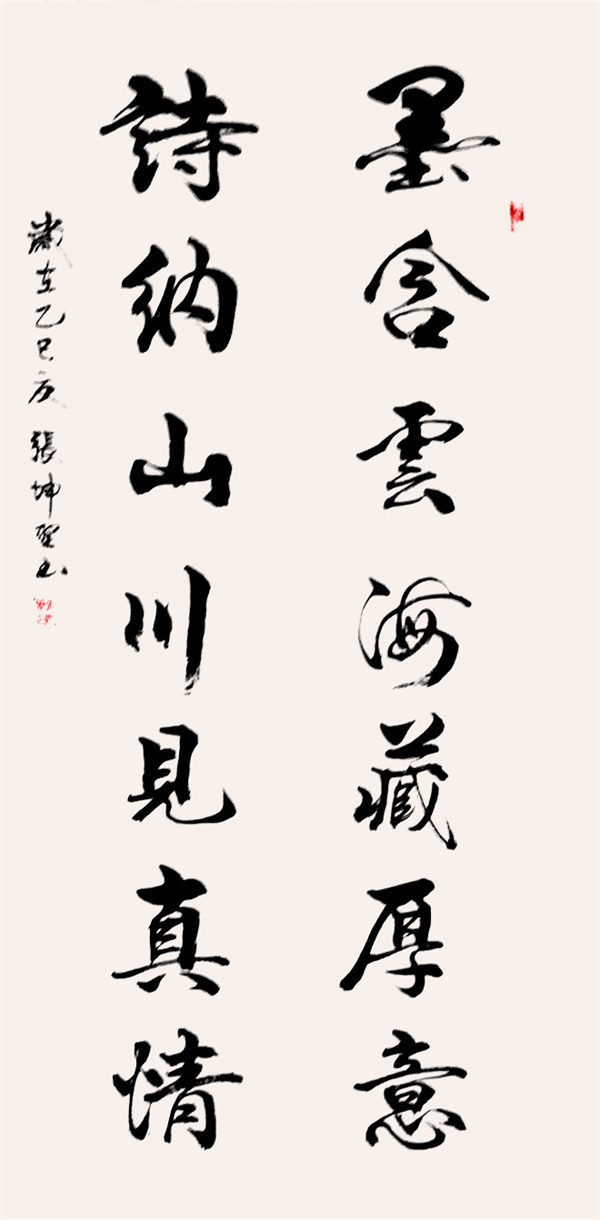 墨含雲海藏厚意
詩納山川見真情
歲在乙巳夜 張坤聖书